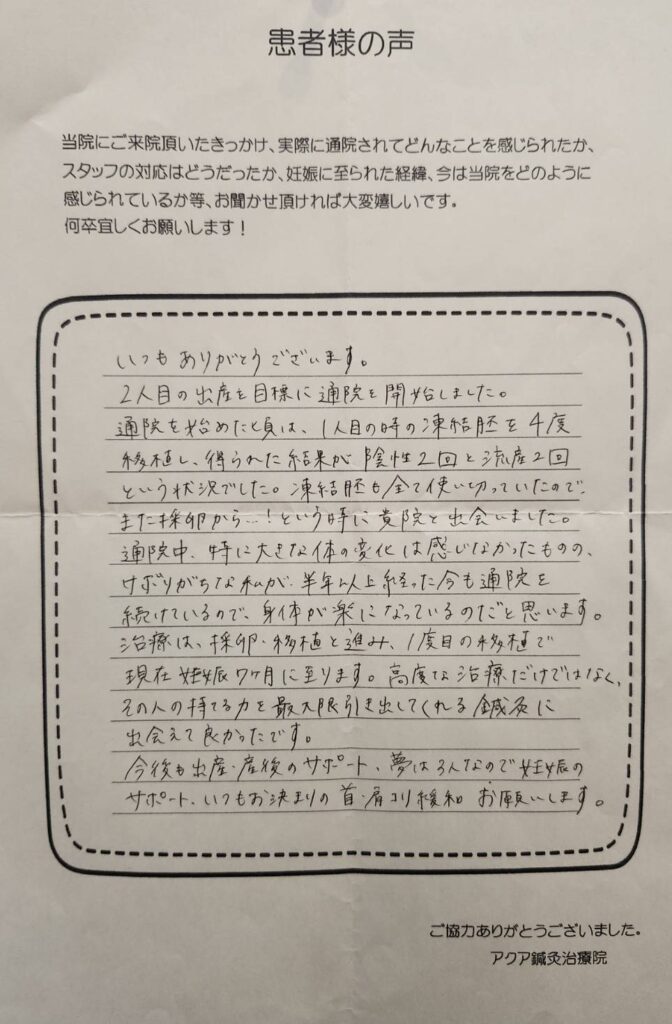 患者様の声
当院にご来院頂いたきっかけ、実際に通院されてどんなことを感じられたか、
スタッフの対応はどうだったか、妊娠に至られた経緯、今は当院をどのように
感じられているか等、お聞かせ頂ければ大変嬉しいです。
何卒宜しくお願いします！
いつもありがとうございます。
2人目の出産を目標に通院を開始しました。
通院を始めた頃は、1人目の時の凍結胚を4度
移植し、得られた結果が陰性2回と流産2回
という状況でした。凍結胚も全て使い切っていたので、
また採卵から…！という時に貴院と出会いました。
通院中、特に大きな体の変化は感じなかったものの、
サボりがちな私が、半年以上経った今も通院を
続けているので、身体が楽になっているのだと思います。
治療は、採卵・移植と進み、1度目の移植で
現在妊娠7ヶ月に至ります。高度な治療だけではなく、
その人の持てる力を最大限引き出してくれる鍼灸に
出会えて良かったです。
今後も出産・産後のサポート、夢は3人なので妊娠の
サポート、いつもお決まりの首・肩コリ緩和お願いします。
ご協力ありがとうございました。
アクア鍼灸治療院